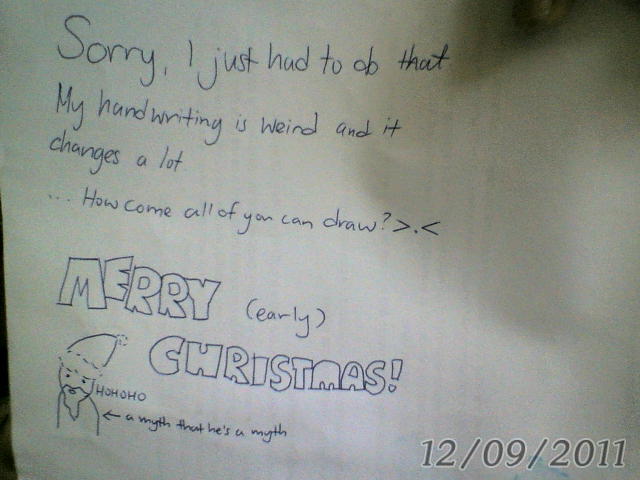 Sorry, I just had to do that
My handwriting is weird and it
changes a lot
... How come all of you can draw? >.<
MERRY (early)
CHRISTMAS!
HOHOHO
← a myth that he's a myth
12/09/2011